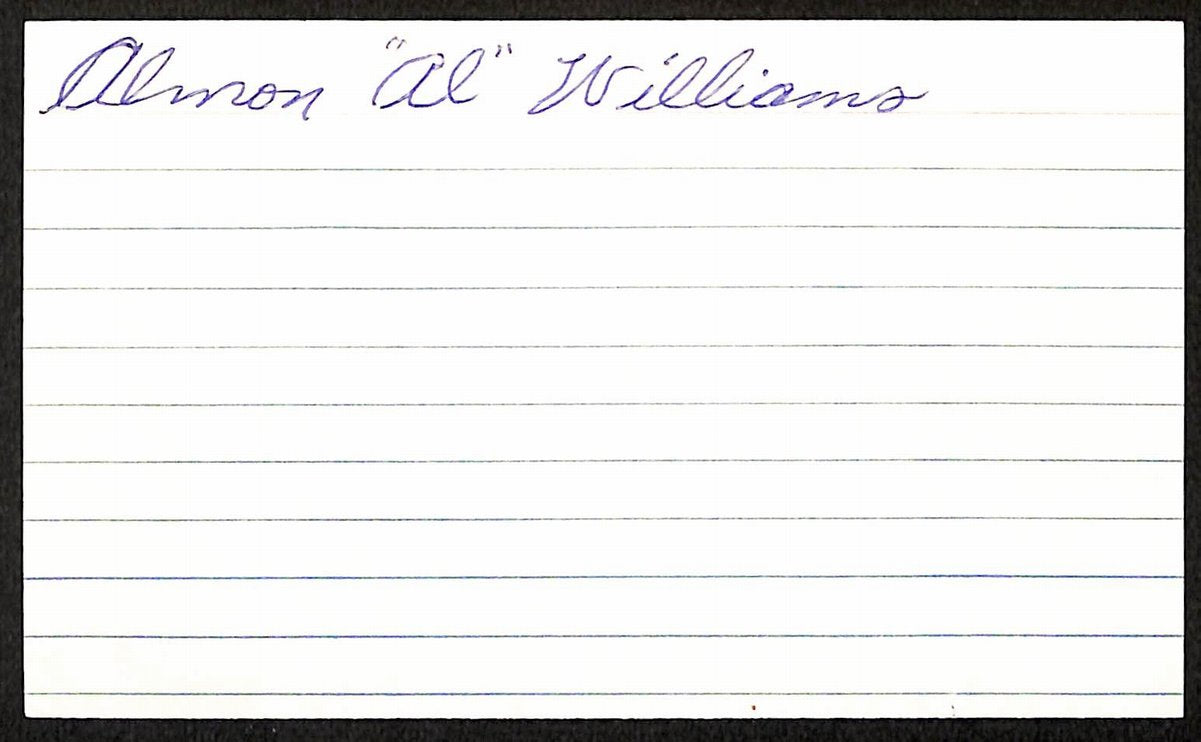 Almon "Al" Williams